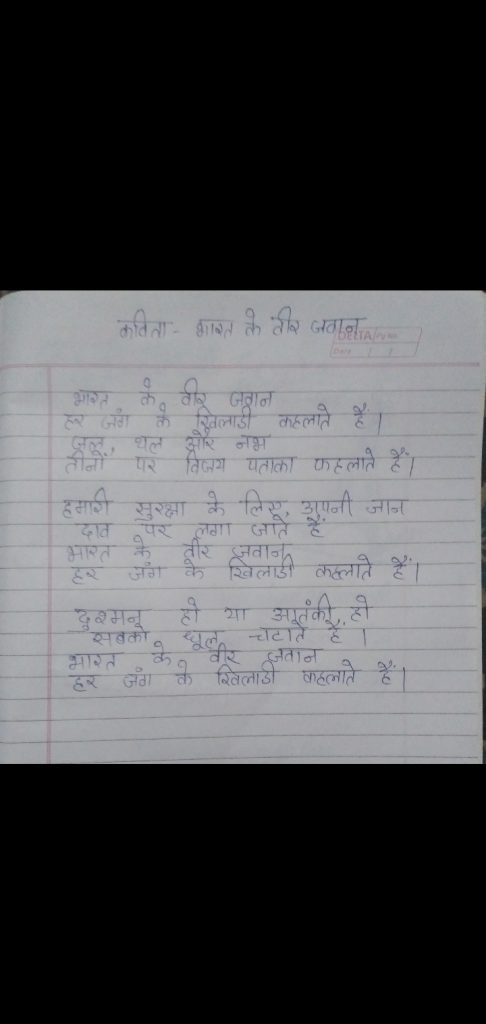 कविता - भारत के वीर जवान
DELTA Pg No.
Date / /
भारत के वीर जवान
हर जंग के खिलाडी कहलाते हैं।
जल, थल और नभ
तीनों पर विजय पताका फहलाते हैं।
हमारी सुरक्षा के लिए, अपनी जान
दाव पर लगा जाते हैं
भारत के वीर जवान
हर जंग के खिलाडी कहलाते हैं।
दुश्मन हो या आतंकी हो
सबको धूल चटाते है ।
भारत के वीर जवान
हर जंग के खिलाडी कहलाते हैं।